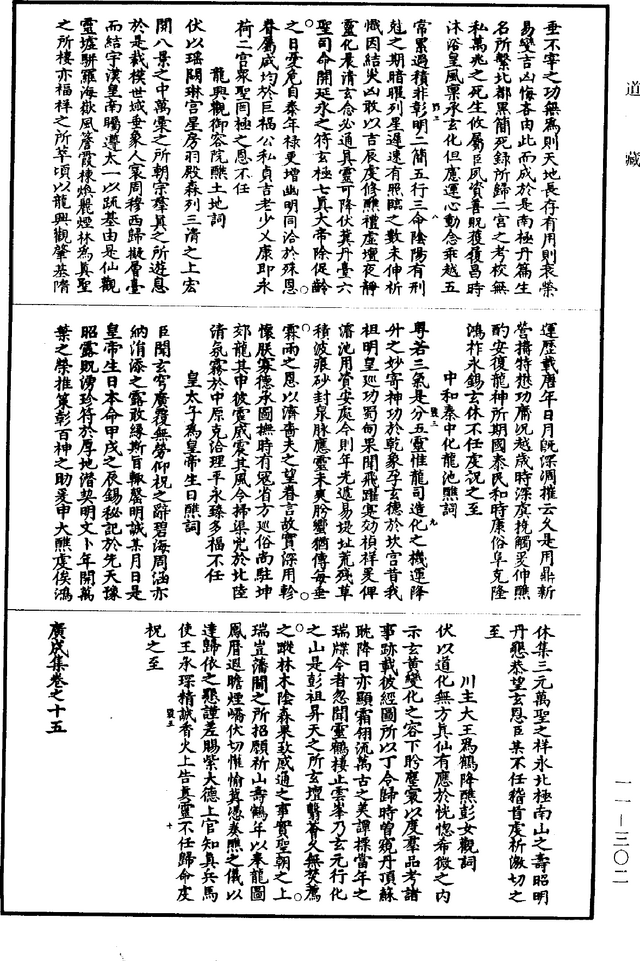 道藏
垂不宰之功無為則天地長存有用則衰榮
易變吉凶悔吝由此而成於是南極丹篇生
名所繫北都黑簡死錄所歸二宮之考校無
私萬兆之死生攸屬臣夙資善貺獲履昌時
沐浴皇風稟承玄化但應運心動念乖越五
常累過積非彰明二簡五行三命陰陽有刑
剋之期暗曜列星遲速有照臨之數未伸祈
懺因結災凶敢以吉辰虔修醮禮虛壇夜靜
靈化晨清玄念必通真靈可降伏冀丹臺六
聖司命開延永之符玄極七真大帝除促齡
之日憂危自泰年祿更增幽明同洽於殊恩
眷屬咸均於巨福公私貞吉老少乂康即永
荷二宮衆聖罔極之恩不任
龍興觀御容院醮土地詞
伏以瑶闕琳宫星房羽殿森列三清之上宏
開八景之中萬靈之所朝宗羣真之所遊息
於是截模世域垂象人寰周穆西歸擬層臺
而結宇漢皇南矚遵太一以疏基由是仙觀
靈墟駢羅海嶽風簷霞棟煥麗煙林為真聖
之所棲亦福祥之所萃頃以龍興觀肇基隋
運歷載唐年日月既深凋摧云久是用鼎新
營搆特懋功庸況越歲時深虞挽觸爰伸醮
酌安復龍神所期國泰民和時康俗阜克隆
鴻祚永錫玄休不任虔祝之至
中和秦中化龍池醮詞
粤若三氣是分五靈惟龍司造化之機運降
升之妙寄神功於乾象孕玄德於坎宫昔我
祖明皇巡功蜀甸果聞飛躍寔効禎祥爰俾
濬池用質安處今則年光遞易堤址荒殘草
積波痕砂封泉脉應靈未爽肸蠁猶傳每垂
霖雨之恩以濟耆夫之望眷言故實深用軫
懷朕寡德承圖撫時有冦省方巡俗尚駐坤
郊龍其申彼靈威震其風令掃㐫兇於北陸
清氛霧於中原克洽理平永臻多福不任
皇太子為皇帝生日醮詞
臣聞玄穹廣覆無勞仰祝之辭碧海周涵亦
納涓滴之露敢緣斯旨輒罄明誠某月日是
皇帝生日本命甲戌之辰錫秘記於先天豫
昭露貺湧珍符於厚地潛契明文卜年開萬
葉之榮推策彰百神之助爰申大醮虔俟鴻
休集三元萬聖之祥永北極南山之壽昭明
丹懇恭望玄恩臣某不任稽首虔祈激切之
至
川主大王為鶴降醮彭女觀詞
伏以道化無方真仙有應於恍惚希微之内
示玄黄變化之容下肸塵寰以度羣品考諸
事跡載彼經圖所以丁令歸時曽窺丹頂蘇
耽降日亦顯霜翎流萬古之美譚標當年之
瑞牒今者忽聞靈鶴棲止雲峯乃玄元行化
之山是彭祖昇天之所玄壇翳薈久無焚薦
之蹤林木陰森果致感通之事實聖朝之上
瑞豈藩閫之所招願祈山壽鶴年以奉龍圖
鳳曆遐瞻煙嶠伏切惟愉冀憑奏醮之儀以
達歸依之懇謹差賜紫大德上官知真兵馬
使王承琛精誠香火上告真靈不任歸命虔
祝之至
廣成集卷之十五
一一—三〇二